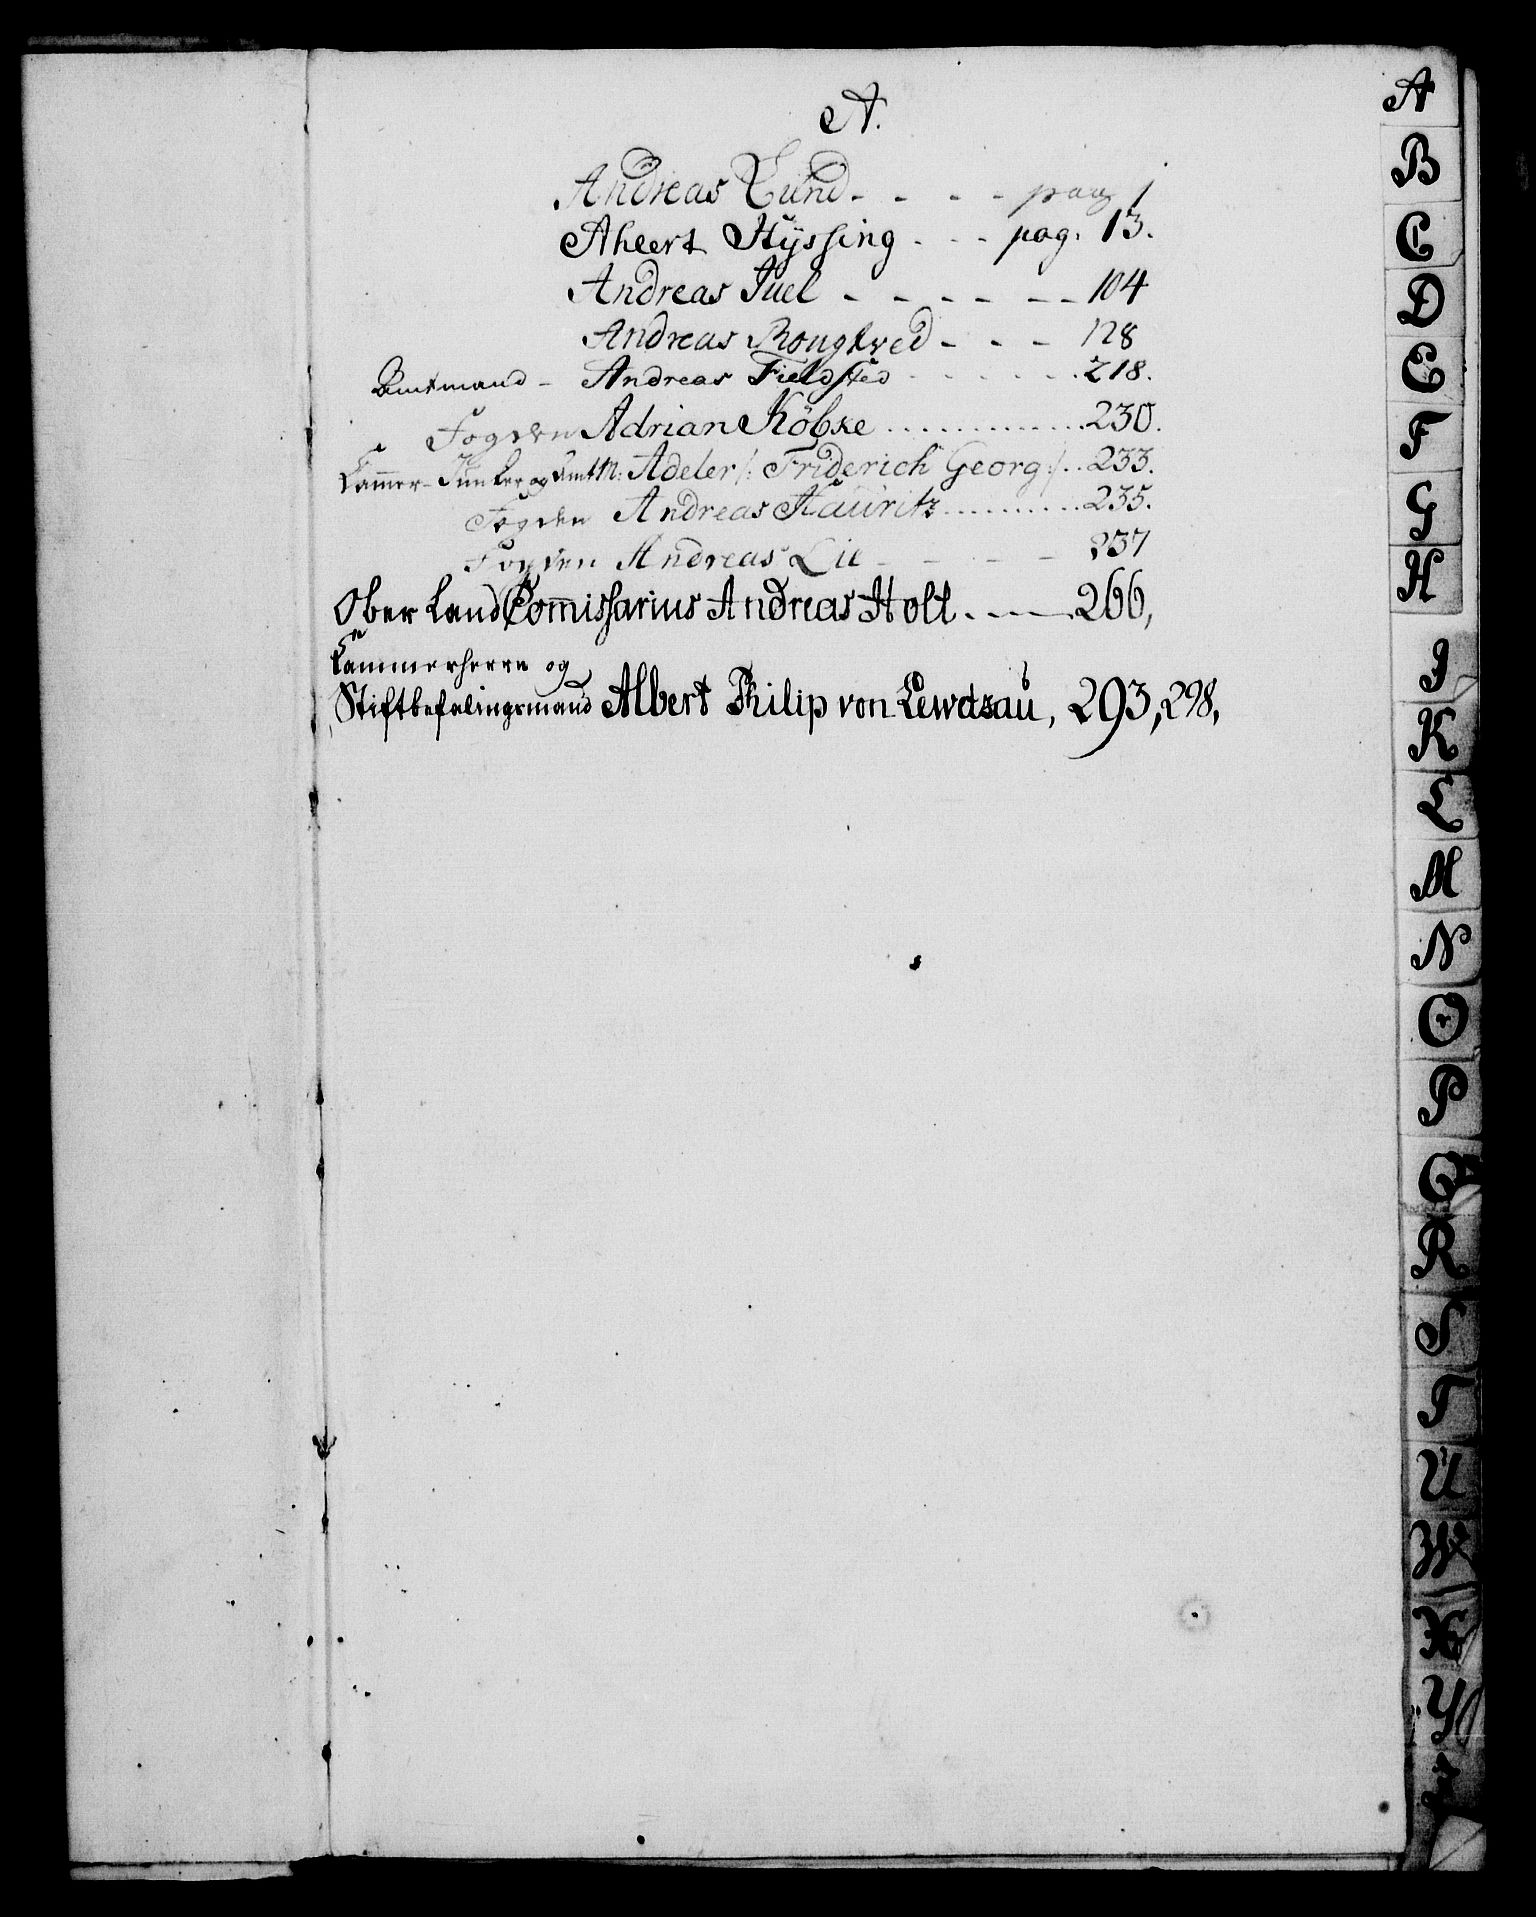 A.
Andreas Lund - - - - pag 1
Ahlert Hÿssing - - - pag. 13.
Andreas Juel - - - - - - 104
Andreas Rougtved - - - 128
Amtmand - Andreas Fieldsted - - - - - - 218.
Fogden Adrian Köbke ............. 230.
Cammer-Junker og AmtM: Adeler /: Friderich Georg :/ .. 233.
Fogden Andreas Hauritz .......... 235.
Fogden Andreas Lie - - - - 237
Ober Land Com̄issarius Andreas Holt. - - - 266,
Cammerherre og
Stiftbefalingsmand Albert Philip von Lewetzau, 293, 298,
A
B
C
D
E
F
G
H
I
K
L
M
N
O
P
Q
R
S
T
U
W
X
Y